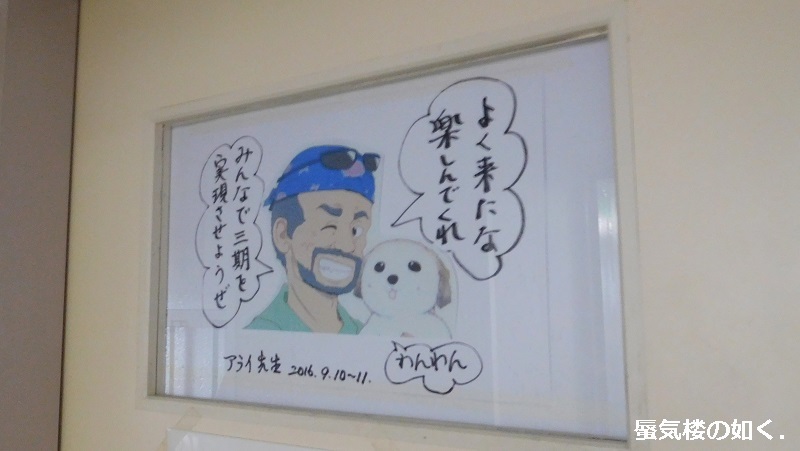 よく来たな
楽しんでくれ
みんなで三期を
実現させようぜ
わんわん
アライ先生 2016.9.10〜11.
蜃気楼の如く.